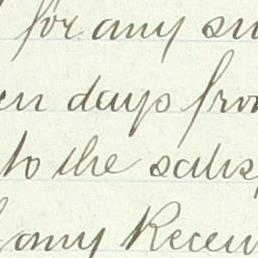 for any su
en days fro
to the satis
any Receiv